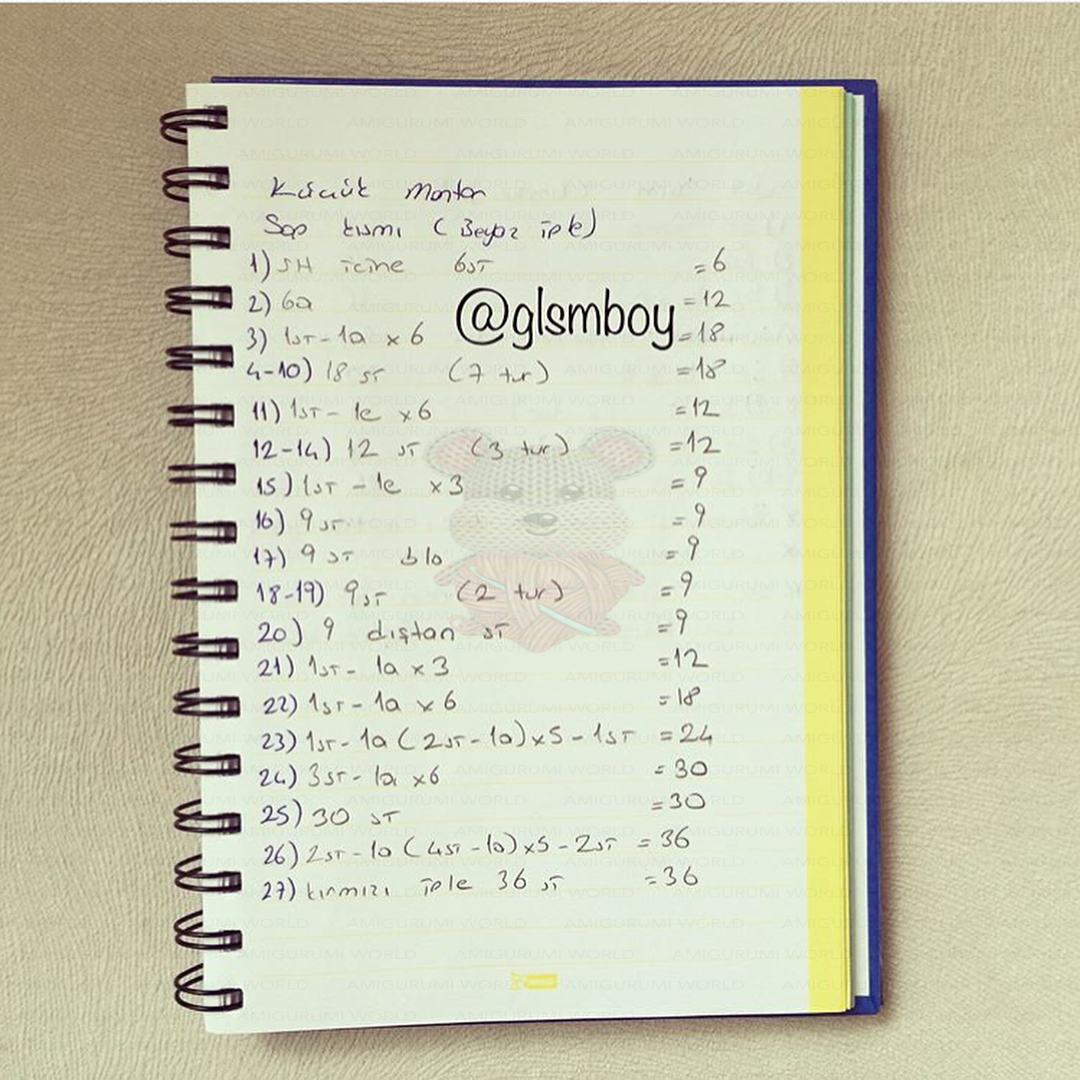 Küçük Mantar
Sap kısmı (Beyaz iple)
1) SH içine 6sr =6
2) 6a =12
@glsmboy
3) 1sr-1a x 6 =18
4-10) 18 sr (7 tur) =18
11) 1sr-1e x6 =12
12-14) 12 sr (3 tur) =12
15) 1sr-1e x3 =9
16) 9 sr =9
17) 9 sr blo =9
18-19) 9sr (2 tur) =9
20) 9 dıştan sr =9
21) 1sr-1a x 3 =12
22) 1sr-1a x 6 =18
23) 1sr-1a (2sr-1a)x5-1sr =24
24) 3sr-1a x6 =30
25) 30 sr =30
26) 2sr-1a (4sr-1a)x5-2sr =36
27) kırmızı iple 36 sr =36
AMIGURUMI WORLD